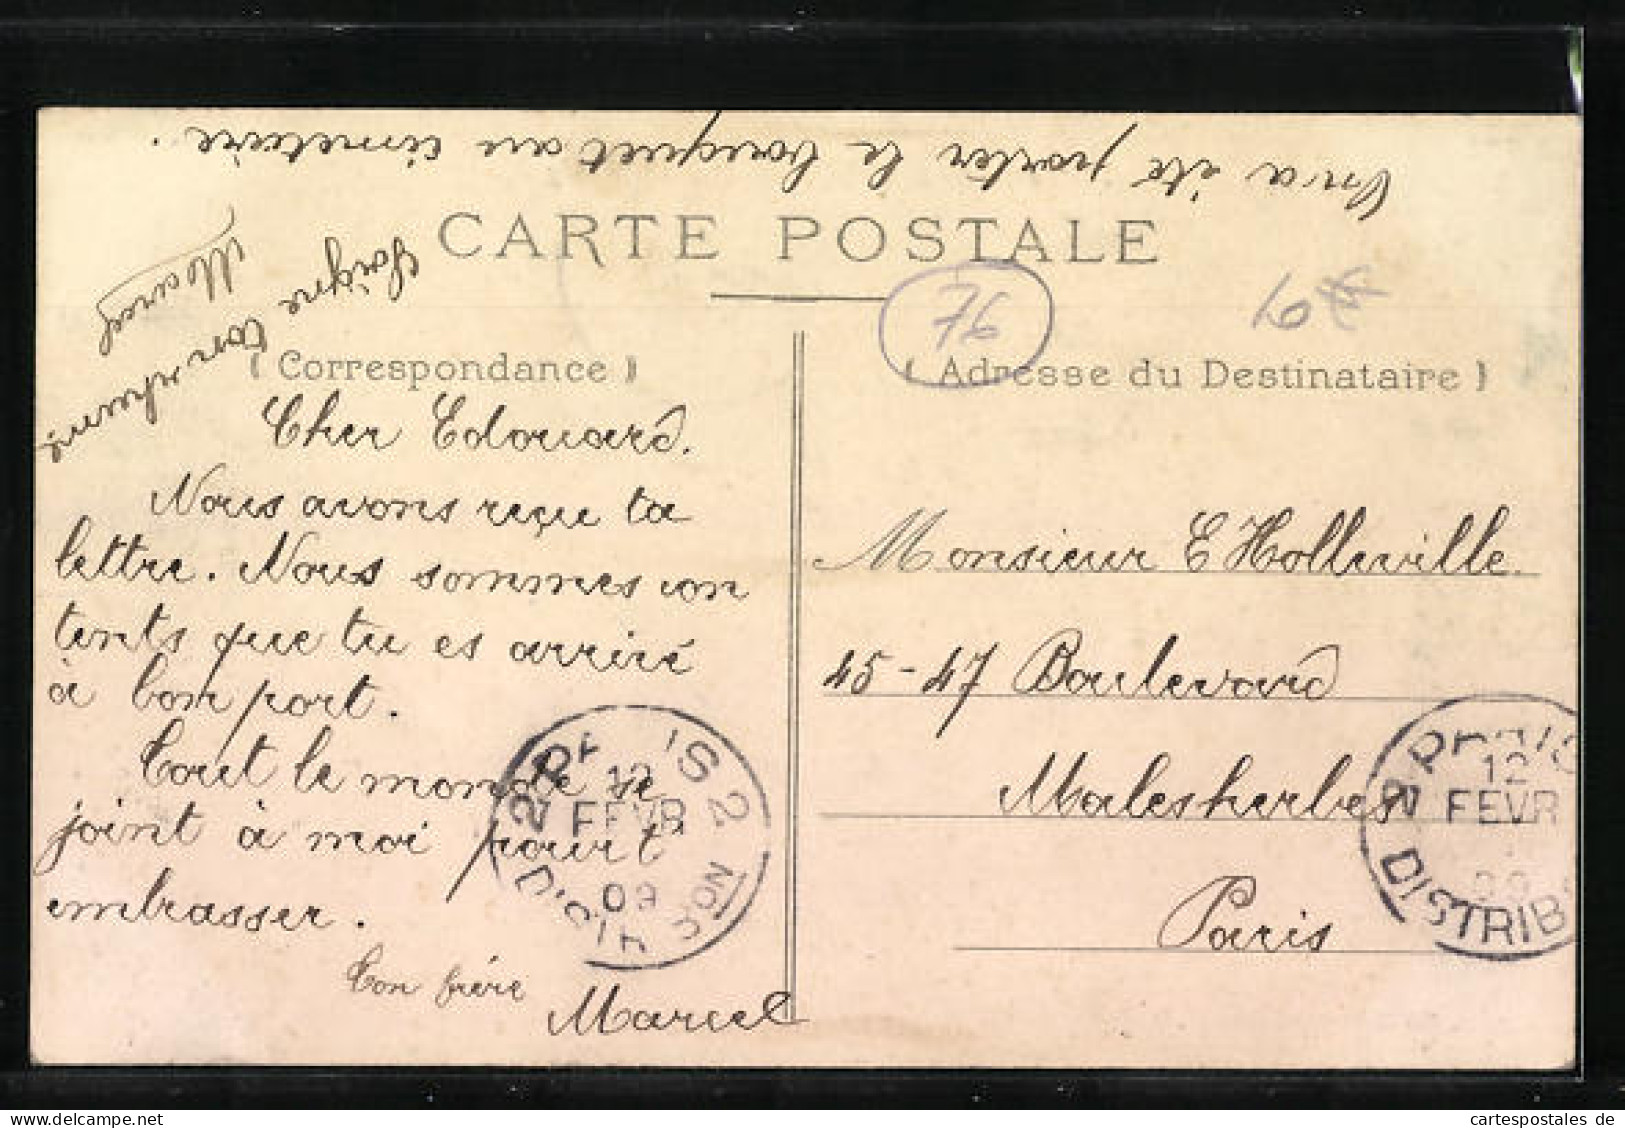 On a été porter le bouquet au cimetière.
CARTE POSTALE
Soigne ton rhume
Marcel
76
( Correspondance )
( Adresse du Destinataire )
Cher Edouard.
Nous avons reçu ta
lettre. Nous sommes con
tents que tu es arrivé
à bon port.
Tout le monde se
joint à moi pour t'
embrasser.
Ton frère
Marcel
Monsieur E Holleville
45-47 Boulevard
Malesherbes
Paris
PARIS 2
12
FEVR
09
PARIS
12
FEVR
09
DISTRIB
cartespostales de